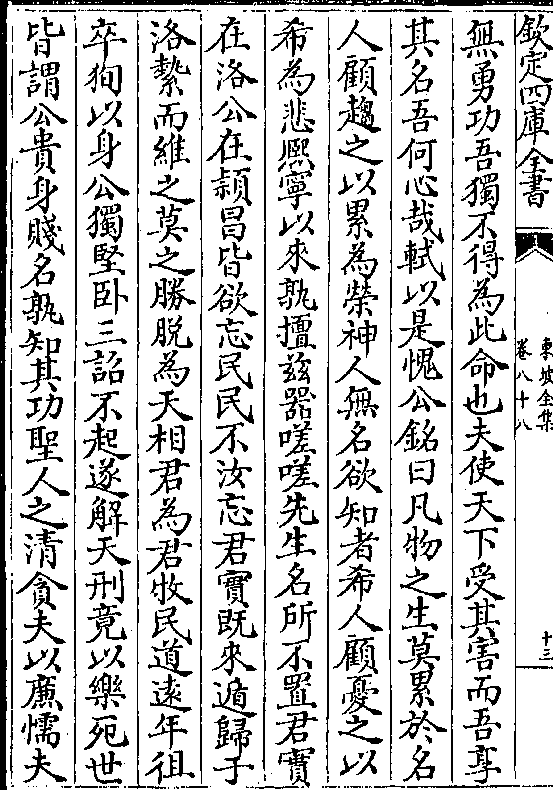 欽定四庫全書
東坡全集
卷八十八
十三
無勇功吾獨不得為此命也夫使天下受其害而吾享
其名吾何心哉軾以是愧公銘曰凡物之生莫累於名
人顧趨之以累為榮神人無名欲知者希人顧憂之以
希為悲熙寧以來孰擅兹器嗟嗟先生名所不置君實
在洛公在潁昌皆欲忘民民不汝忘君實既來遁歸于
洛縶而維之莫之勝脱為天相君為君牧民道遠年徂
卒狥以身公獨堅卧三詔不起遂解天刑竟以樂死世
皆謂公貴身賤名孰知其功聖人之清貪夫以廉懦夫